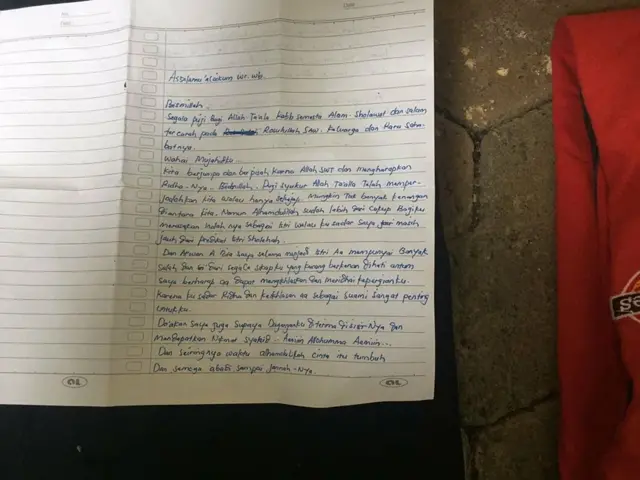 Assalamu'alaikum wr. wb.
Bismillah.
Segala puji Bagi Allah Ta'ala Robb semesta Alam. Sholawat dan salam
tercurah pada Rosulullah SAW. Keluarga dan Para Saha-
batnya.
Wahai Mujahidku..
Kita berjumpa dan berpisah karena Allah SWT dan mengharapkan
Ridha-Nya. Puji syukur Allah Ta'alla Telah memper-
jodohkan kita walau hanya Mungkin Tak banyak kenangan
diantara kita. Namun Alhamdulillah sudah lebih dari cukup Bagiku
walau ku sadar Saya pun masih
jauh dari predikat Istri Sholehah.
Dan saya selama menjadi Istri Aa mempunyai Banyak
Salah dan Segala sikapku yang kurang berkenan dihati antum
Saya berharap aa dapat mengikhlaskan dan meridhai kepergianku.
Karena ku sadar Ridha dan keikhlasan aa sebagai Suami sangat penting
Untukku.
Doakan Saya juga Supaya diterima disisi-Nya dan
Mendapatkan Nikmat Syahid - Aamiin Allahumma Aamiin...
Dan Seiringnya waktu alhamdulillah cinta itu tumbuh
Dan semoga abadi sampai Jannah-Nya.